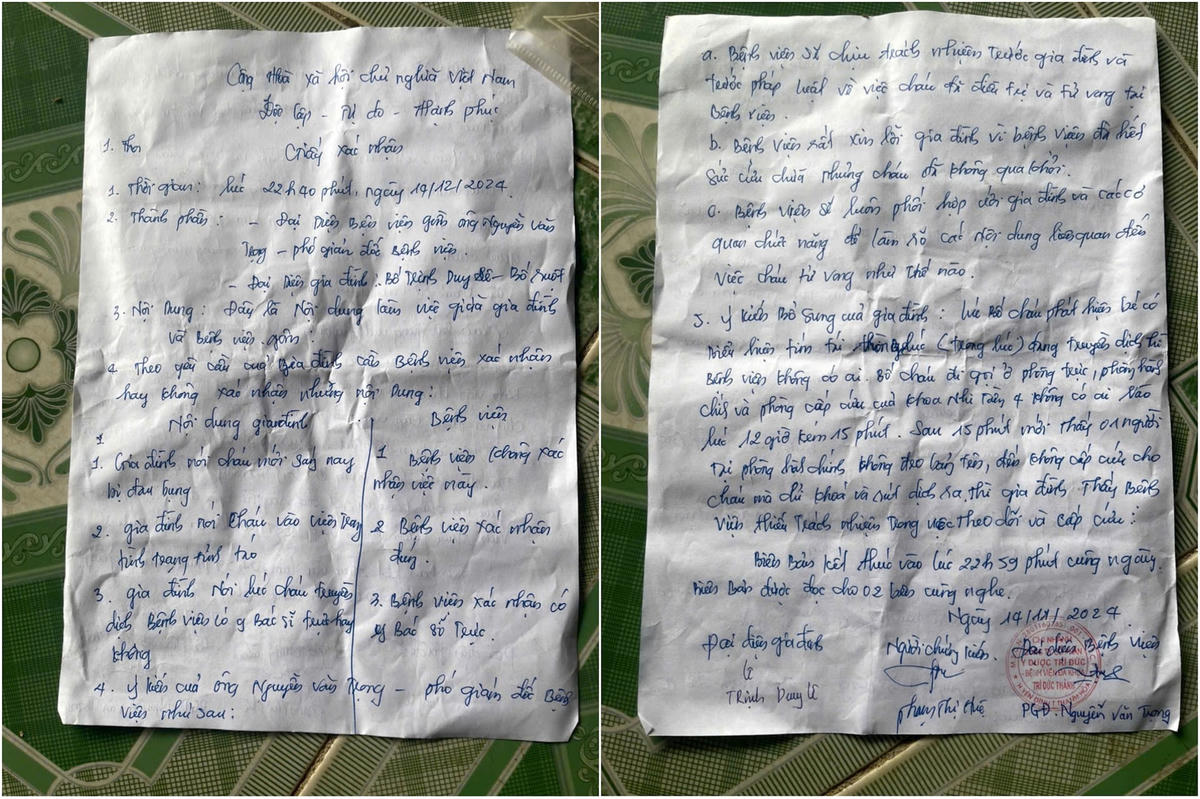 Cộng Hoà xã hội chủ nghĩa Việt Nam
Độc lập - Tự do - Hạnh phúc
1. Thời
Giấy xác nhận
1. Thời gian: lúc 22h40 phút, ngày 14/12/2024.
2. Thành phần: - Đại Diện Bên viện gồm ông Nguyễn Văn
Trọng - phó giám đốc Bệnh viện.
- Đại Diện gia đình. Bố Trịnh Duy
3. Nội Dung: Đây là Nội dung làm việc giữa gia đình
và Bệnh viện gồm:
4. Theo yêu cầu của Gia đình cần Bệnh viện xác nhận
hay không xác nhận những nội Dung:
Nội dung gia đình
Bệnh viện
1
1. Gia đình nói cháu mới sáng nay
bị đau bụng
1 Bệnh viện không xác
nhận việc này.
2. gia đình nói Cháu vào viện trong
tình trạng tỉnh táo
2 Bệnh viện xác nhận
đúng.
3. gia đình Nói lúc cháu truyền
dịch Bệnh viện có y Bác sĩ trực hay
không
3. Bệnh viện xác nhận có
y Bác sĩ Trực.
4. Ý kiến của ông Nguyễn Văn Trọng - phó giám đốc Bệnh
viện như sau:
a. Bệnh viện sẽ chịu trách nhiệm trước gia đình và
trước pháp luật về việc cháu đi điều trị và tử vong tại
Bệnh viện.
b. Bệnh viện rất xin lỗi gia đình vì bệnh viện đã hết
sức cứu chữa nhưng cháu đã không qua khỏi.
c. Bệnh viện sẽ luôn phối hợp với gia đình và các cơ
quan chức năng để làm rõ các nội dung liên quan đến
việc cháu tử vong như thế nào.
5. Ý kiến Bổ Sung của gia đình: lúc Bố cháu phát hiện bé có
biểu hiện tím tái (trong lúc) đang truyền dịch thì
Bệnh viện không có ai. Bố cháu đi gọi ở phòng trực, phòng hành
chính và phòng cấp cứu của khoa Nhi Tầng 4 không có ai Vào
lúc 12 giờ kém 15 phút. Sau 15 phút mới thấy 01 người
tại phòng hành chính không đeo bảng tên, đến không cấp cứu cho
cháu mà chỉ khoá và rút dịch ra, thì gia đình Thấy Bệnh
Viện thiếu Trách nhiệm Trong việc Theo dõi và cấp cứu:
Biên Bản kết thúc vào lúc 22h59 phút cùng ngày.
Biên Bản được đọc cho 02 bên cùng nghe.
Ngày 14/12/2024
Đại diện gia đình
Người chứng kiến.
Đại diện Bệnh viện
CHI NHÁNH
Y DƯỢC TRÍ ĐỨC
- BỆNH VIỆN ĐA KHOA
TRÍ ĐỨC THÀNH
Trịnh Duy Lê
Phạm Thị Huệ
PGĐ. Nguyễn Văn Trọng